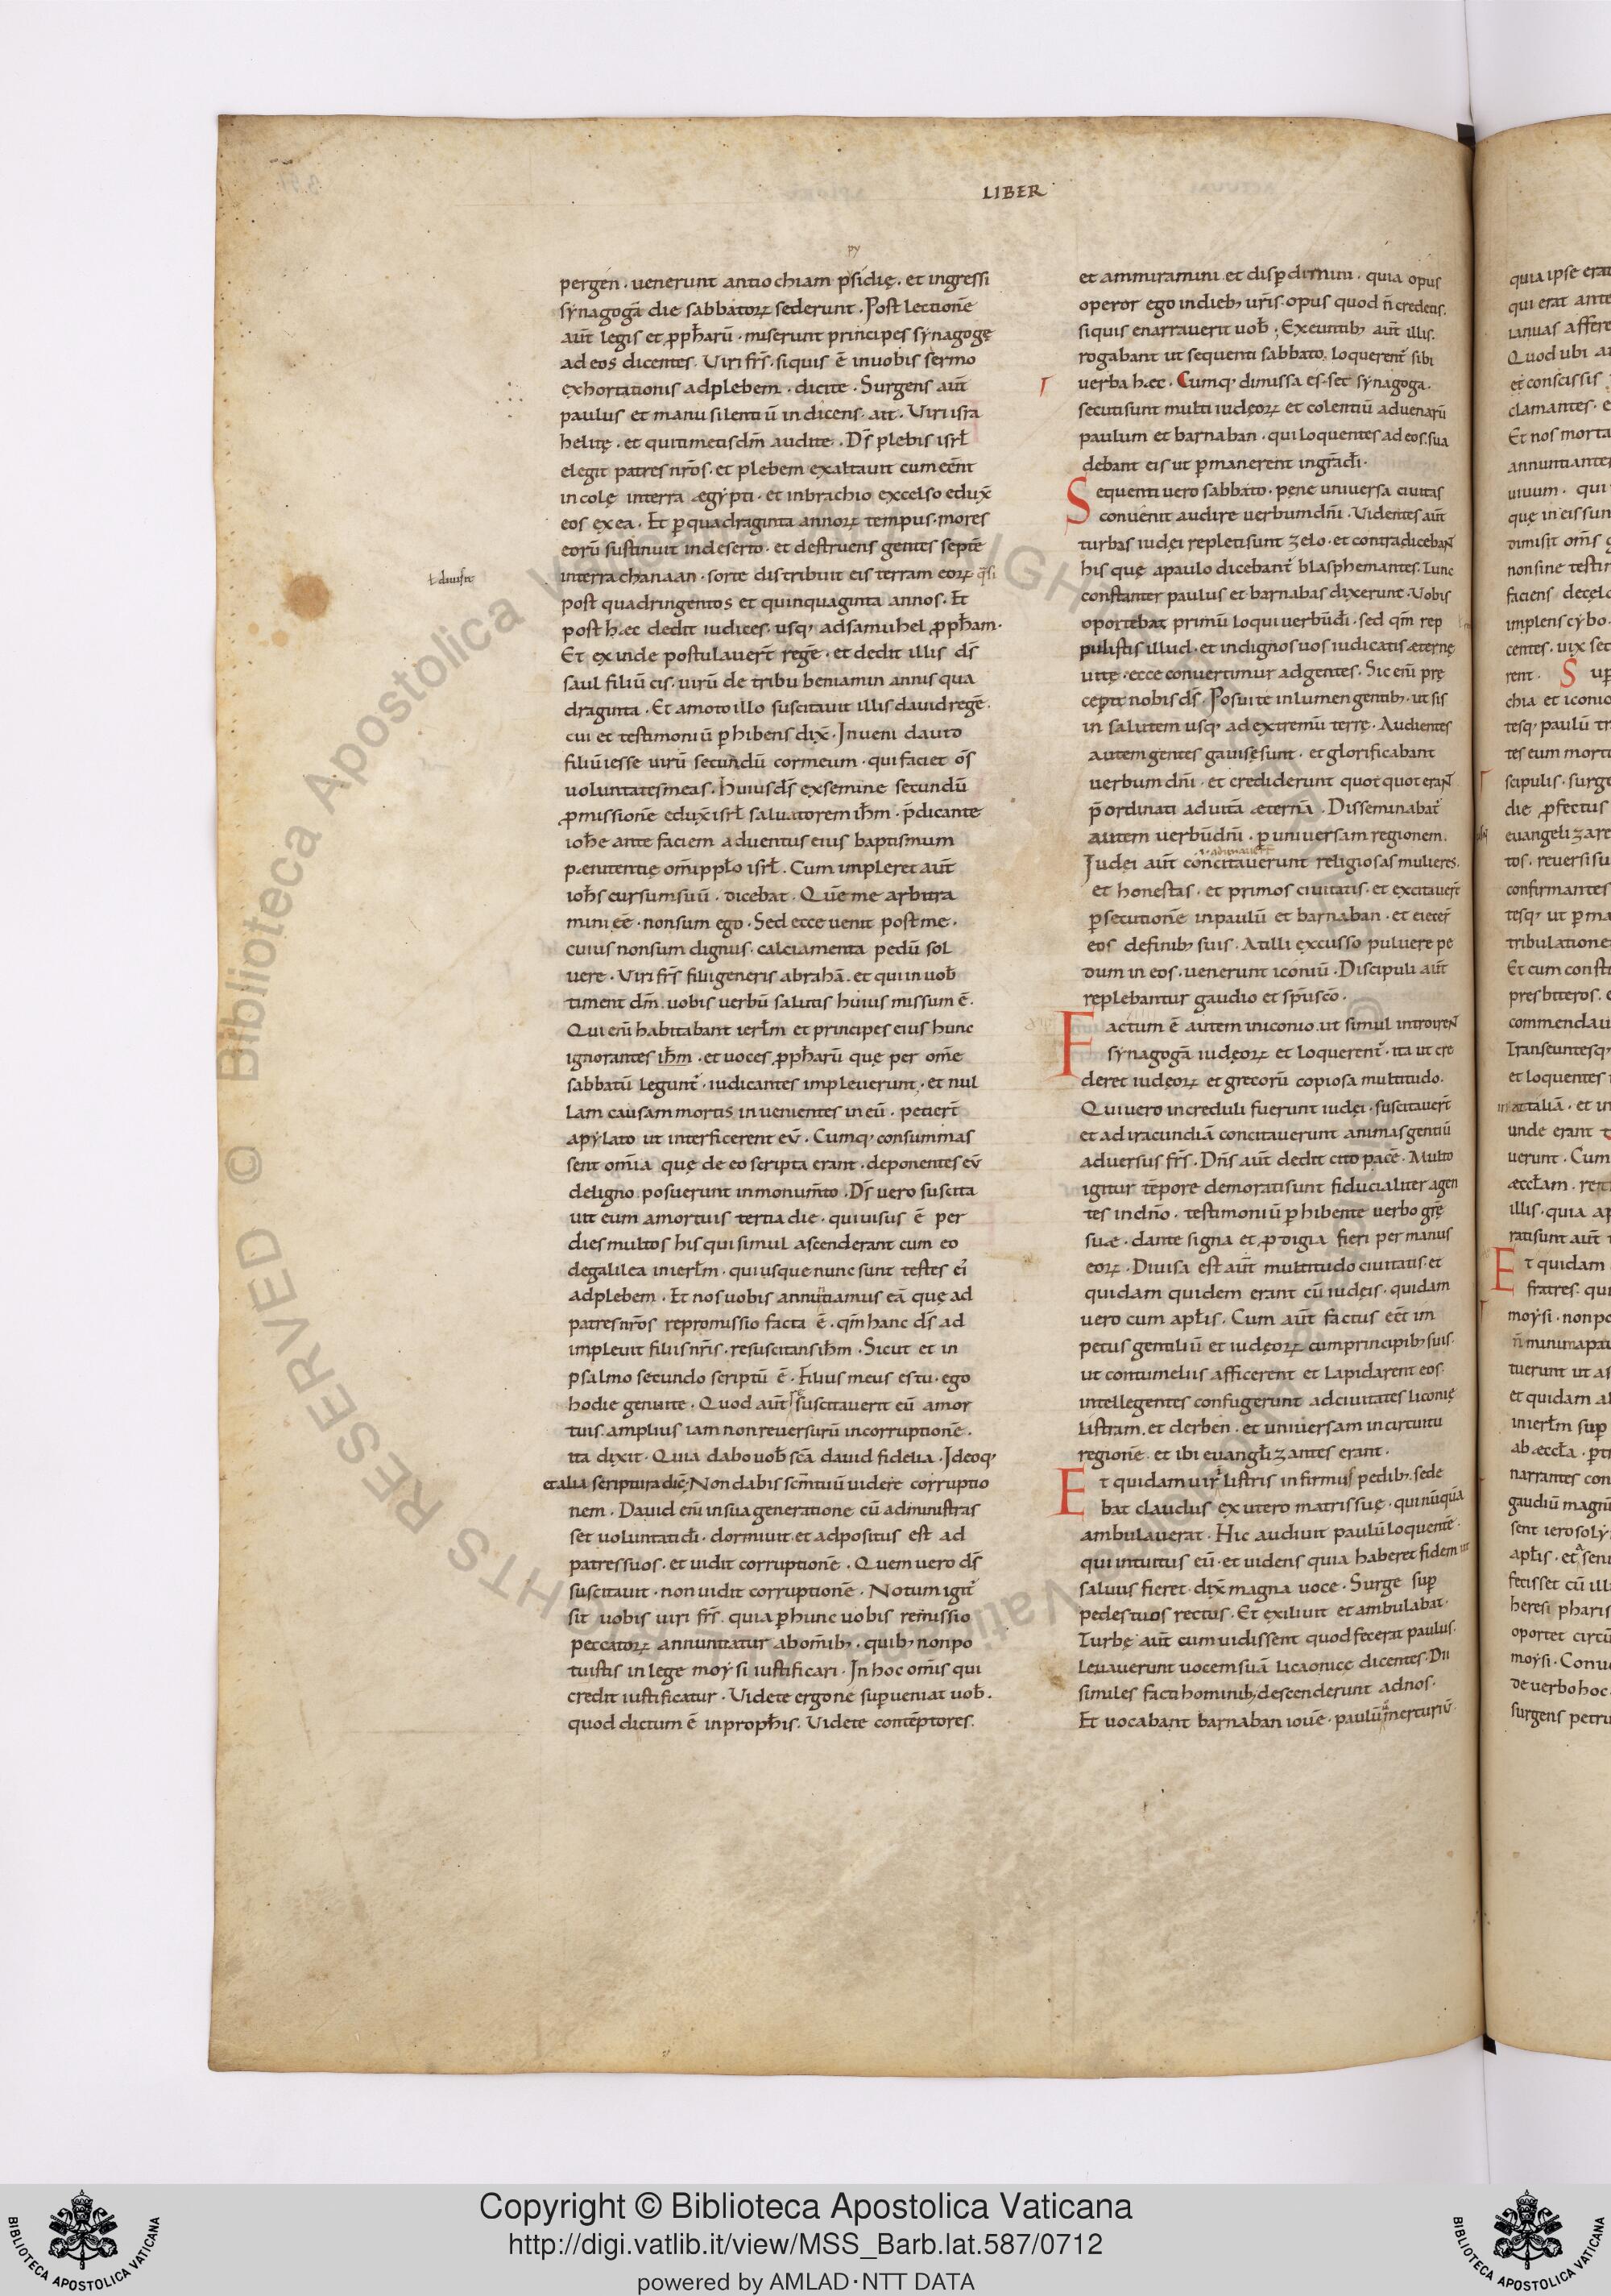 LIBER
py
pergen̄ · uenerunt antiochiam psidię · et ingressi
synagogā die sabbatoꝝ sederunt · Post lectionē
aūt legis et ꝓpharū · miserunt principes synagogę
ad eos dicentes · Uiri frs̄ · siquis ē in uobis sermo
exhortationis ad plebem · dicite · Surgens aūt
paulus et manu silentiū indicens · ait · Uiri isra
helitę · et qui timetis dm̄ audite · Ds̄ plebis isrł
elegit patres nr̄os · et plebem exaltauit cum eēnt
incolę in terra ægypti · et in brachio excelso edux̄
eos ex ea · Et ꝑ quadraginta annoꝝ tempus · mores
eorū sustinuit in deserto · et destruens gentes septē
in terra chanaan · sorte distribuit eis terram eoꝝ q̄si
ł diuisit
post quadringentos et quinquaginta annos · Et
post hæc dedit iudices · usq; ad samuhel ꝓpham ·
Et exinde postulauert̄ regē · et dedit illis ds̄
saul filiū cis · uirū de tribu beniamin annis qua
draginta · Et amoto illo suscitauit illis dauid regē ·
cui et testimoniū ꝑhibens dix̄ · Inueni dauid
filiū iesse uirū secundū cor meum · qui faciet om̄s
uoluntates meas · Huius ds̄ ex semine secundū
ꝓmissionē edux̄ isrł saluatorem ihm̄ · p̄dicante
iohe ante faciem aduentus eius baptismum
pænitentię om̄i pplo isrł · Cum impleret aūt
iohs cursum suū · dicebat · Quē me arbitra
mini eē · non sum ego · Sed ecce uenit post me ·
cuius non sum dignus · calciamenta pedū sol
uere · Uiri frs̄ filii generis abrahā · et qui in uob̄
timent dm̄ · uobis uerbū salutis huius missum ē ·
Qui enī habitabant ierłm et principes eius hunc
ignorantes ihm̄ · et uoces ꝓpharū quę per omē
sabbatū legunt̄ · iudicantes impleuerunt · et nul
lam causam mortis inuenientes in eū · petiert̄
a pylato ut interficerent eū · Cumq; consummas
sent omīa quę de eo scripta erant · deponentes eū
de ligno posuerunt in monumto · Ds̄ uero suscita
uit eum a mortuis tertia die · qui uisus ē per
dies multos his qui simul ascenderant cum eo
de galilea in ierłm · qui usque nunc sunt testes ei
ad plebem · Et nos uobis annuntiamus eā quę ad
patres nr̄os repromissio facta ē · qm̄ hanc ds̄ ad
impleuit filiis nr̄is · resuscitans ihm̄ · Sicut et in
psalmo secundo scriptū ē · Filius meus es tu · ego
hodie genui te · Quod aūt suscitauerit eū a mor
tuis · amplius iam non reuersurū in corruptionē ·
ita dixit · Quia dabo uob̄ scā dauid fidelia · Ideoq;
et alia scriptura dic̄ · Non dabis scm̄ tuū uidere corruptio
nem · Dauid enī in sua generatione cū administras
set uoluntati di · dormiuit · et adpositus est ad
patres suos · et uidit corruptionē · Quem uero ds̄
suscitauit · non uidit corruptionē · Notum igit̄
sit uobis uiri frs̄ · quia ꝑ hunc uobis remissio
peccatoꝝ annuntiatur ab omib; · quib; non po
tuistis in lege moysi iustificari · In hoc omīs qui
credit iustificatur · Uidete ergo ne supueniat uob̄ ·
quod dictum ē in prophis · Uidete contēptores ·
et ammiramini et disꝑdimini · quia opus
operor ego in dieb; uris · opus quod n̄ credetis ·
siquis enarrauerit uob̄ · Exeuntib; aūt illis ·
rogabant ut sequenti sabbato · loquerent̄ sibi
uerba hæc · Cumq; dimissa esset synagoga ·
secuti sunt multi iudęoꝝ et colentiū aduenarū
paulum et barnaban · qui loquentes ad eos · sua
debant eis ut ꝑmanerent in gra di ·
Sequenti uero sabbato · pene uniuersa ciuitas
conuenit audire uerbum dn̄i · Uidentes aūt
turbas iudei repleti sunt zelo · et contradicebant
his quę a paulo dicebant̄ blasphemantes · Tunc
constanter paulus et barnabas dixerunt · Uobis
oportebat primū loqui uerbū di · sed qm̄ rep
pulistis illud · et indignos uos iudicatis æternę
uitę · ecce conuertimur ad gentes · Sic enī prę
cepit nobis ds̄ · Posui te in lumen gentib; · ut sis
in salutem usq; ad extremū terrę · Audientes
autem gentes gauisę sunt · et glorificabant
uerbum dn̄i · et crediderunt quotquot erant
p̄ordinati ad uitā æternā · Disseminabat̄
autem uerbū dn̄i · ꝑ uniuersam regionem ·
Iudei aūt concitauerunt religiosas mulieres ·
et honestas · et primos ciuitatis · et excitauert̄
ꝑsecutionē in paulū et barnaban · et eiecer̄
eos de finib; suis · At illi excusso puluere pe
dum in eos · uenerunt iconiū · Discipuli aūt
replebantur gaudio et spū sco ·
Factum ē autem in iconio · ut simul introirent
synagogā iudęoꝝ et loquerent̄ · ita ut cre
deret iudęoꝝ et grecorū copiosa multitudo ·
Qui uero increduli fuerunt iudęi · suscitauert̄
et ad iracundiā concitauerunt animas gentiū
aduersus frs̄ · Dn̄s aūt dedit cito pacē · Multo
igitur tēpore demorati sunt fiducialiter agen
tes in dn̄o · testimoniū ꝑhibente uerbo grę̄
suæ · dante signa et ꝓdigia fieri per manus
eoꝝ · Diuisa est aūt multitudo ciuitatis · et
quidam quidem erant cū iudęis · quidam
uero cum apłis · Cum aūt factus eēt im
petus gentiliū et iudęoꝝ cum principib; suis ·
ut contumeliis afficerent et lapidarent eos ·
intellegentes confugerunt ad ciuitates liconię
listram · et derben · et uniuersam in circuitu
regionē · et ibi euanglizantes erant ·
Et quidam uir listris infirmus pedib; · sede
bat claudus ex utero matris suę · qui nūquā
ambulauerat · Hic audiuit paulū loquentē ·
qui intuitus eū · et uidens quia haberet fidem ut
saluus fieret · dix̄ magna uoce · Surge sup
pedes tuos rectus · Et exiliuit et ambulabat ·
Turbę aūt cum uidissent quod fecerat paulus ·
leuauerunt uocem suā licaonice dicentes · Dii
similes facti hominib; descenderunt ad nos ·
Et uocabant barnaban iouē · paulū mercuriū ·
Copyright © Biblioteca Apostolica Vaticana
http://digi.vatlib.it/view/MSS_Barb.lat.587/0712
powered by AMLAD·NTT DATA
BIBLIOTECA APOSTOLICA VATICANA
BIBLIOTECA APOSTOLICA VATICANA